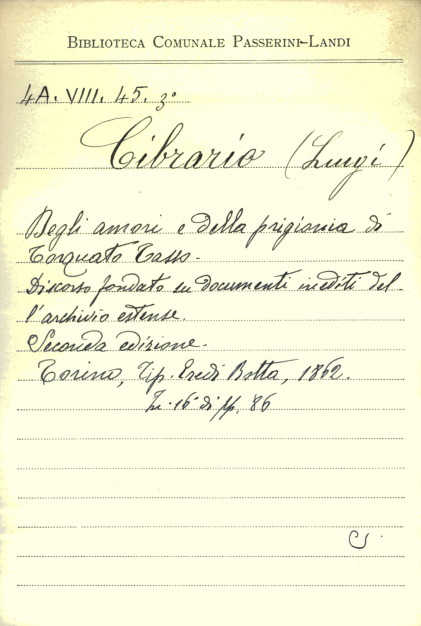 BIBLIOTECA COMUNALE PASSERINI-LANDI
4A. VIII. 45. 3°
Cibrario (Luigi)
Degli amori e della prigionia di
Torquato Tasso.
Discorso fondato su documenti inediti del-
l'archivio estense.
Seconda edizione.
Torino, Tip. Eredi Botta, 1862.
In-16° di pp. 86